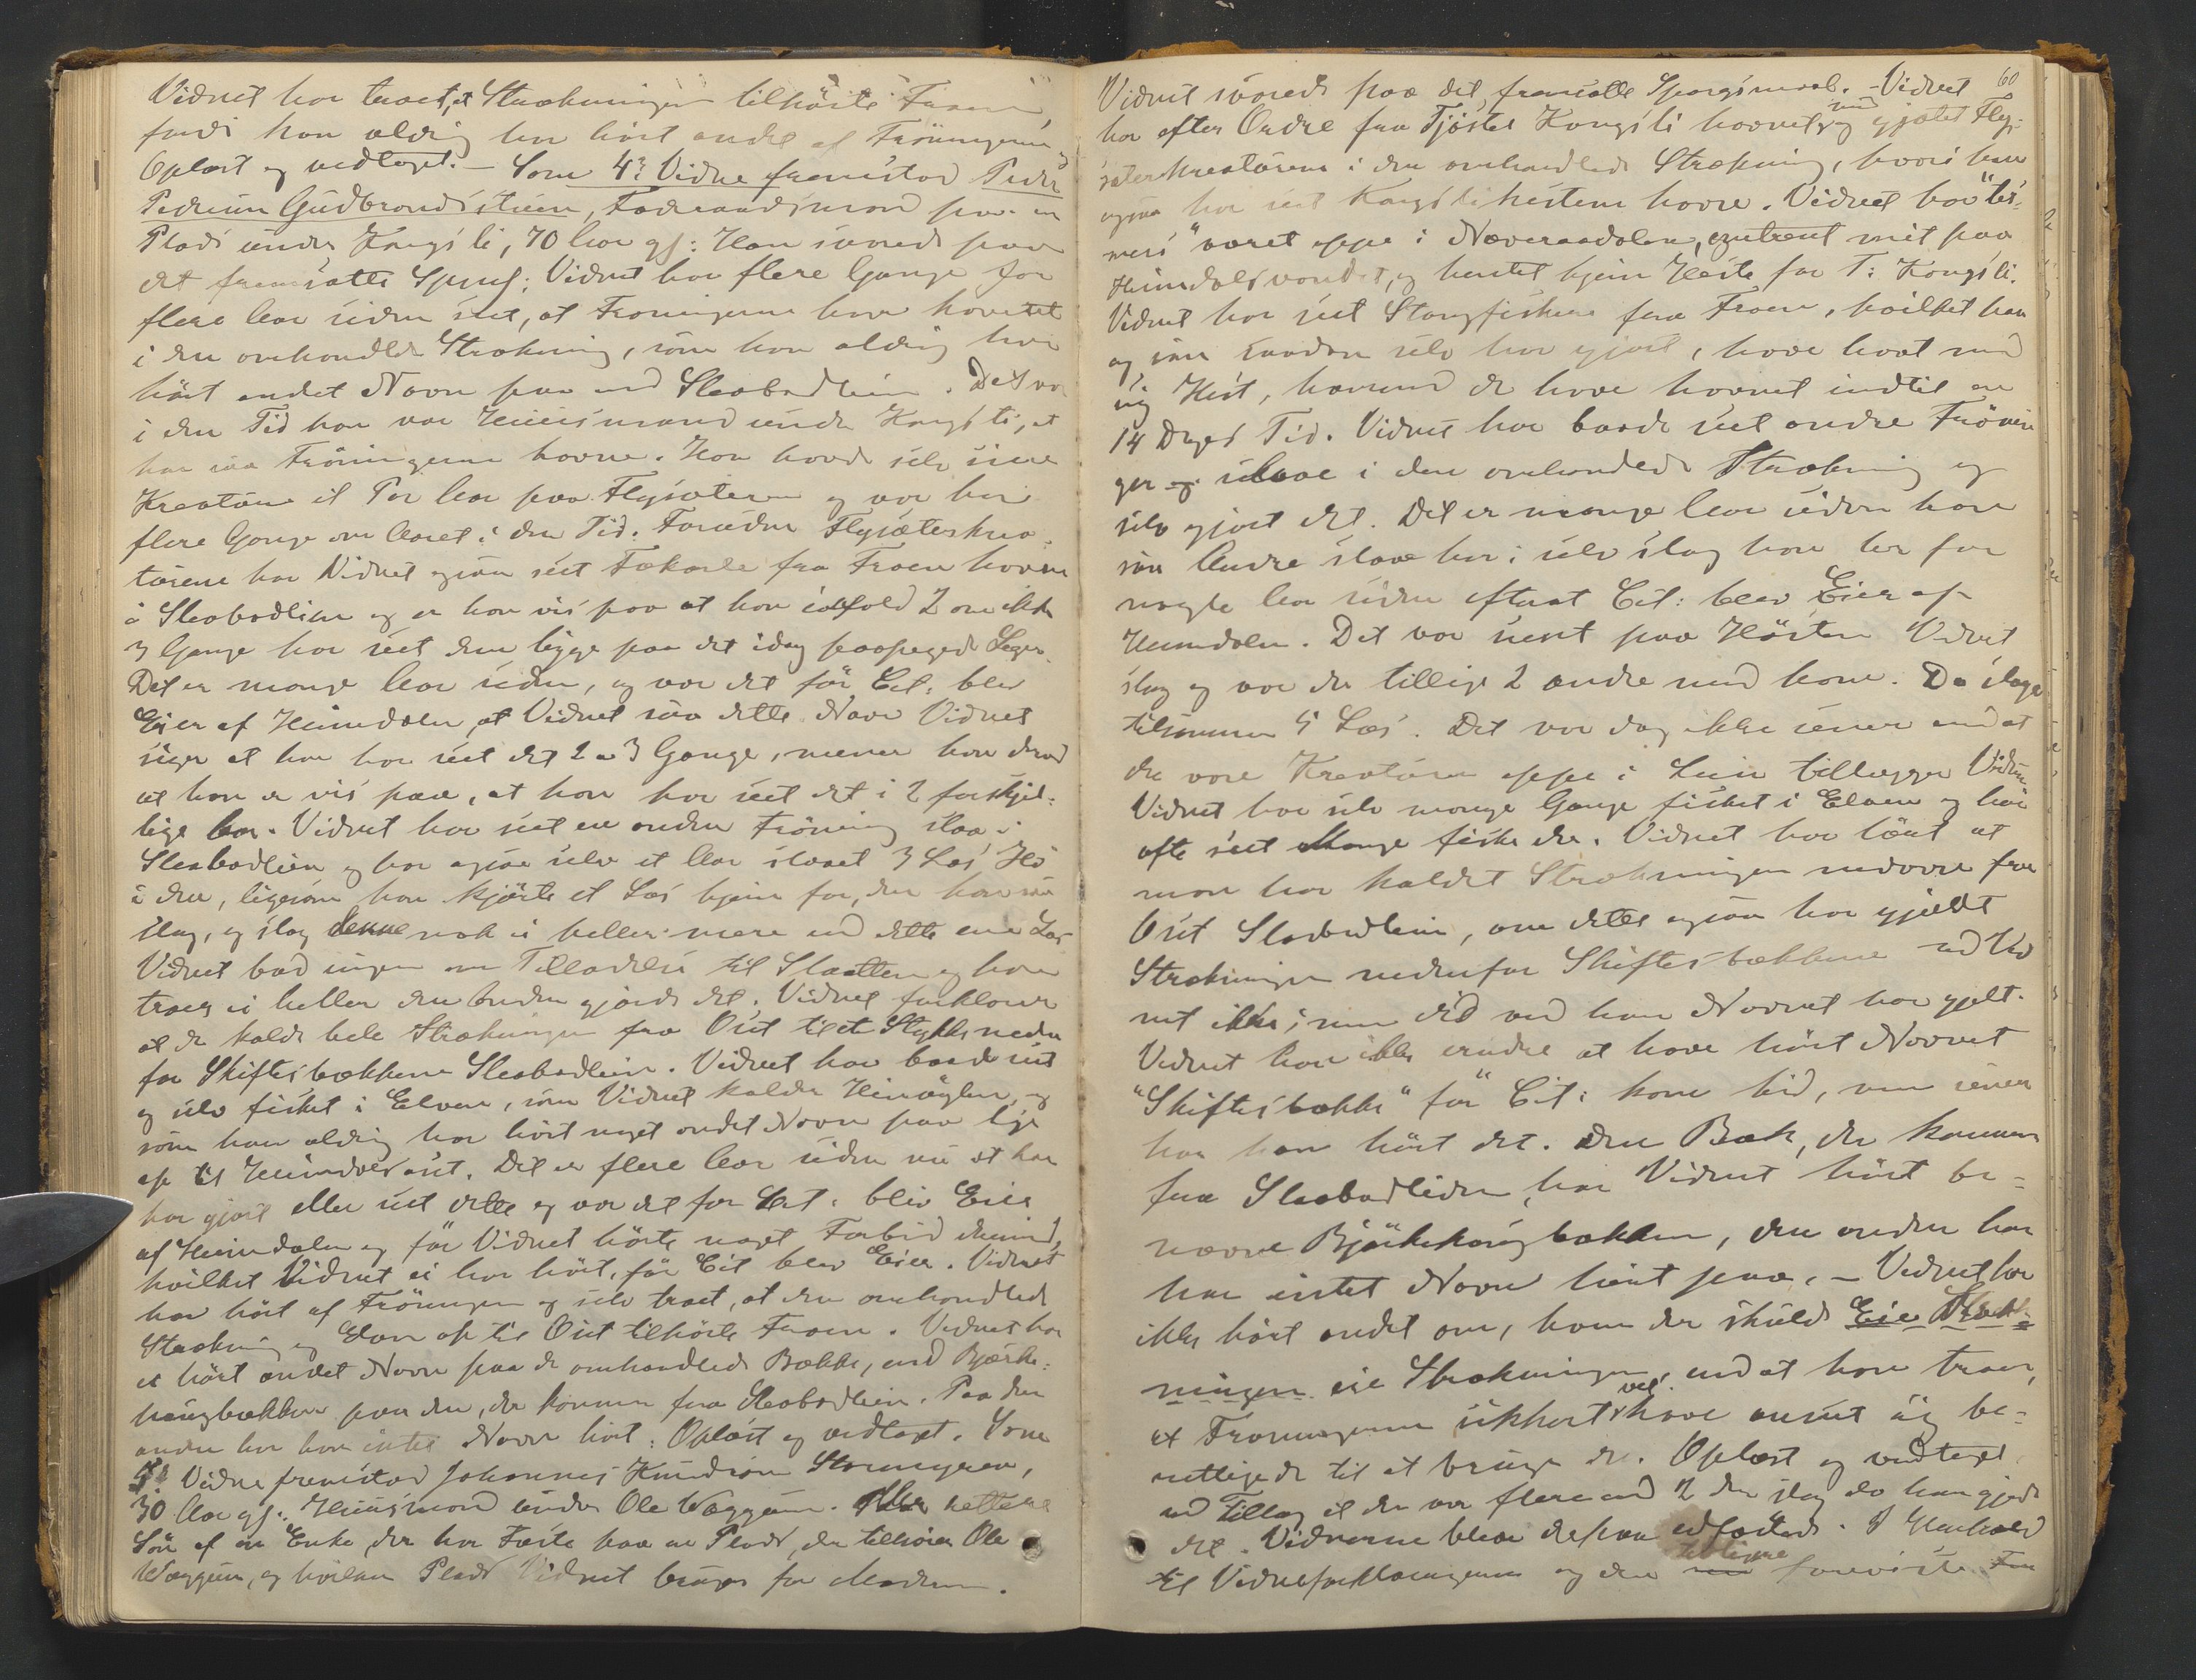 Vidnet har troet, at Strækningen tilhörte Froen,
fordi han aldrig har hört andet af Fröningerne
Oplæst og vedtaget. – Som 4: Vidne fremstod Peder
Pedersen Gudbrandsstuen, Föderaadsmand paa en
Plads under Kongsli, 70 Aar gl: Han svarede paa
det fremsatte Spsml: Vidnet har flere Gange for
flere Aar siden seet, at Froningerne have havnet
i den omhandlede Strækning, som han aldrig har
hört andet Navn paa end Slaabodlien. Det var
i den Tid han var Huusmand under Kongsli, at
han saa Fröningerne havne. Han havde selv sine
Kreaturer et Par Aar paa Flysæteren og var her
flere Gange om Aaret i den Tid. Foruden Flysæterkrea-
turene har Vidnet ogsaa seet Fækarle fra Froen havne
i Slaabodlien og er han vis paa at han ialfald 2 om ikke
3 Gange har seet dem ligge paa det idag paapegede Leger.
Det er mange Aar siden, og var det för Cit: blev
Eier af Heimdalen, at Vidnet saa dette. Naar Vidnet
siger at han har seet det 2 a 3 Gange, mener han derved
at han er vis paa, at han har seet det i 2 forskjel-
lige Aar. Vidnet har seet en anden Fröning slaa i
Slaabodlien og har ogsaa selv et Aar slaaet 3 Læs Hö
i den, ligesom han kjörte et Læs hjem for, den han saa
slog, og slog denne nok ei heller mere end dette ene Læs
Vidnet bad ingen om Tilladelse til Slaatten og han
troer ei heller den Anden gjorde det. Vidnet forklarer
at de kalde hele Strækningen fra Osit til et Stykke neden
for Skiftesbækkene Slaabodlien. Vidnet har baade seet
og selv fisket i Elven, som Vidnet kalder Hinöglen, og
som han aldrig har hört noget andet Navn paa lige
op til Heimdalsosit. Det er flere Aar siden nu at han
har gjort eller seet dette og var det for Cit: blev Eier
af Heimdalen og för Vidnet hörte noget Forbud derimod,
hvilket Vidnet ei har hört, för Cit blev Eier. Vidnet
har hört af Fröningen og selv troet, at den omhandlede
Strækning og Elven op til Osit tilhörte Froen. Vidnet har
ei hört andet Navn paa de omhandlede Bække, end Bjørke-
haugbækken paa den, der kommer fra Slaabodlien. Paa den
anden har han intet Navn hört. Oplæst og vedtaget. Som
5: Vidne fremstod Johannes Knudsen Stormyren,
30 Aar gl:. Huusmand under Ole Vaggum. Eller rettere
Sön af en Enke, der har Fæste paa en Plads, der tilhörer Ole
Waggum, og hvilken Plads Vidnet bruger for Moderen.
60
Vidnet svarede paa det fremsatte Spørgsmaal. – Vidnet
har efter Ordre fra Tjöstel Kongsli havnet med og gjætet Fly-
sæterkreaturene i den omhandlede Strækning, hvori han
ogsaa har seet Kongslihestene havne. Vidnet har
været oppe i Næveraadalen, omtrent mit paa
Heimdalsvandet, og hentet hjem Heste for T: Kongsli.
Vidnet har seet Stangfiskere fra Froen, hvilket han
og saa saadan selv har gjort, have havt med
sig Hest, hvormed de have havnet indtil en
14 Dages Tid. Vidnet har baade seet andre Frönin-
ger slaae i den omhandlede Strækning og
selv gjort det. Det er mange Aar siden han
saa Andre slaae her; selv slog han her for
nogle Aar siden efterat Cit: blev Eier af
Heimdalen. Det var sent paa Hösten Vidnet
slog og var der tillige 2 andre med ham. De sloge
tilsammen 5 Læs. Det var dog ikke senere end at
der vare Kreaturer oppe i Lien tillægger Vidnet
Vidnet har selv mange Gange fisket i Elven og har
ofte seet Mange fiske der. Vidnet har hört at
man har kaldet Strækningen nedover fra
Osit Slaabodlien, om dette ogsaa har gjældt
Strækningen nedenfor Skiftesbækkene ved Vid
net ikke; men did ved han Navnet har gjeldt.
Vidnet kan ikke erindre at have hört Navnet
"Skiftesbække" för Cit: kom hid, men senere
har han hört det. Den Bæk, der kommer
fra Slaabodlien, har Vidnet hört be-
nævne Björkehaugbækken, den anden har
han intet Navn hört paa. – Vidnet har
ikke hört andet om, hvem der skulde Eie Stræk-
ningen eie Strækningen, end at han troer,
at Froningerne sikkert vel have anseet sig be-
rettigede til at bruge den. Oplæst og vedtaget,
med Tillæg at der var flere end 2 der slog da han gjorde
det. Vidnerne bleve derpaa edfæstede. I Henhold
til Vidneforklaringerne og den foreviste